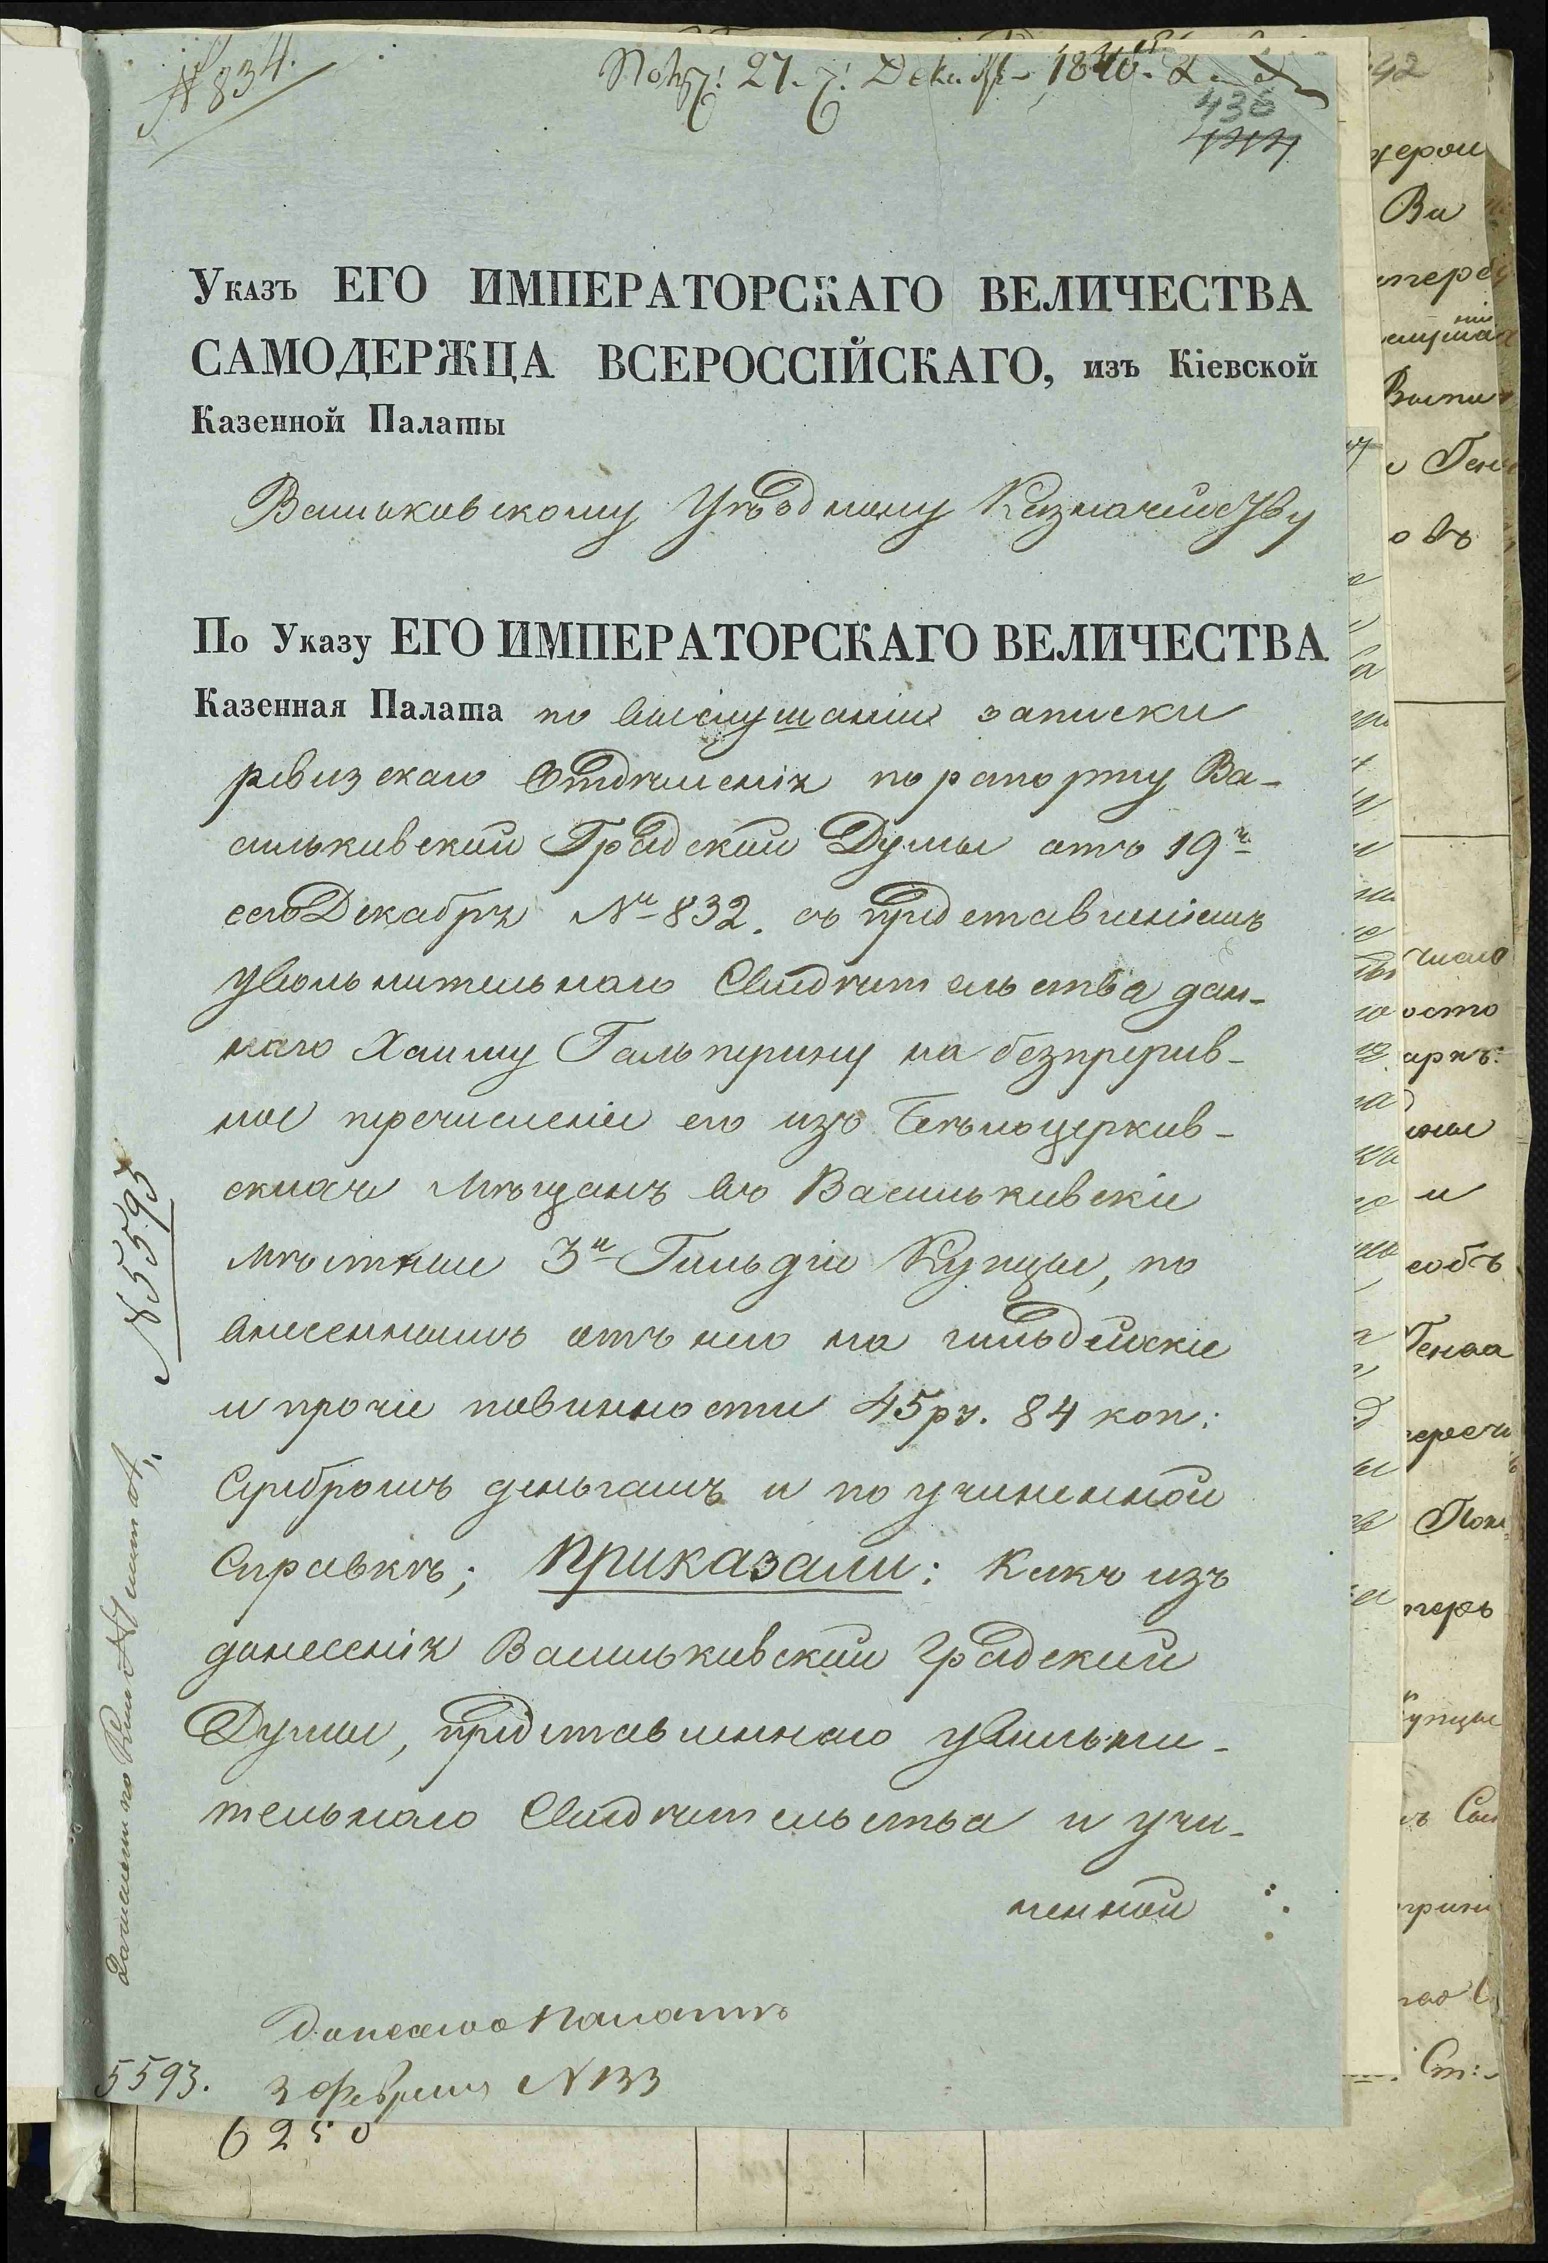 № 834.
27. Декабр 1840.
436
444
Указъ ЕГО ИМПЕРАТОРСКАГО ВЕЛИЧЕСТВА
САМОДЕРЖЦА ВСЕРОССІЙСКАГО, изъ Кіевской
Казенной Палаты
Васильковскому Уѣздному Казначейству
По Указу ЕГО ИМПЕРАТОРСКАГО ВЕЛИЧЕСТВА
Казенная Палата по выслушаніи записки
ревизскаго Отдѣленія по рапорту Ва-
сильковской Градской Думы отъ 19го
сего Декабря № 832. съ представленіемъ
увольнительнаго Свидѣтельства дан-
наго Хаиму Гальперину на безпрерыв-
ное перечисленіе его изъ Бѣлоцерков-
скихъ Мѣщанъ въ Васильковскіе
Мѣстные 3й Гильдіи Купцы, по
внесеннымъ отъ него на гильдейскіе
и прочіе повинности 45 ру. 84 коп:
Серебромъ деньгамъ и по учиненной
Справкѣ; Приказали: Какъ изъ
донесенія Васильковской Градской
Думы, представленнаго увольни-
тельнаго Свидѣтельства и учи-
ненной
№ 5593
Донесено Палатѣ
3 Февраля № 133
5593.
6250